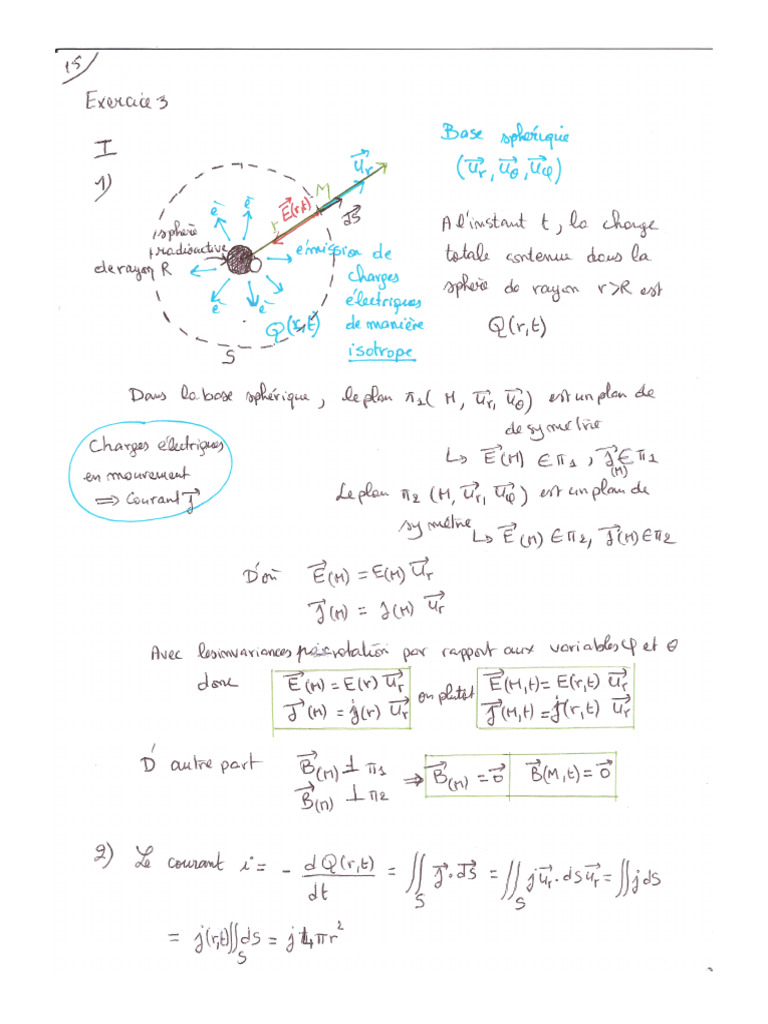 15
Exercice 3
I
1)
Base sphérique
(u⃗r, u⃗θ, u⃗φ)
u⃗r
M
E⃗(r,t)
r
dS⃗
e⁻ e⁻
sphère
radioactive
de rayon R
émission de
charges
électriques
de manière
isotrope
e⁻ e⁻
Q(r,t)
S
A l'instant t, la charge
totale contenue dans la
sphère de rayon r>R est
Q(r,t)
Dans la base sphérique, le plan π1(M, u⃗r, u⃗θ) est un plan de
de symétrie
↳ E⃗(M) ∈ π1, j⃗(M) ∈ π1
Charges électriques
en mouvement
⟹ Courant j⃗
Le plan π2 (M, u⃗r, u⃗φ) est un plan de
symétrie ↳ E⃗(M) ∈ π2, j⃗(M) ∈ π2
D'où E⃗(M) = E(M) u⃗r
j⃗(M) = j(M) u⃗r
Avec les invariances par rotation par rapport aux variables φ et θ
donc E⃗(M) = E(r) u⃗r ou plutôt E⃗(M,t) = E(r,t) u⃗r
j⃗(M) = j(r) u⃗r j⃗(M,t) = j(r,t) u⃗r
D'autre part B⃗(M) ⊥ π1
B⃗(M) ⊥ π2 ⟹ B⃗(M) = 0⃗ B⃗(M,t) = 0⃗
2) Le courant i = - dQ(r,t)/dt = ∬S j⃗.dS⃗ = ∬S j u⃗r . dS u⃗r = ∬ j dS
= j(r,t) ∬S dS = j 4πr²